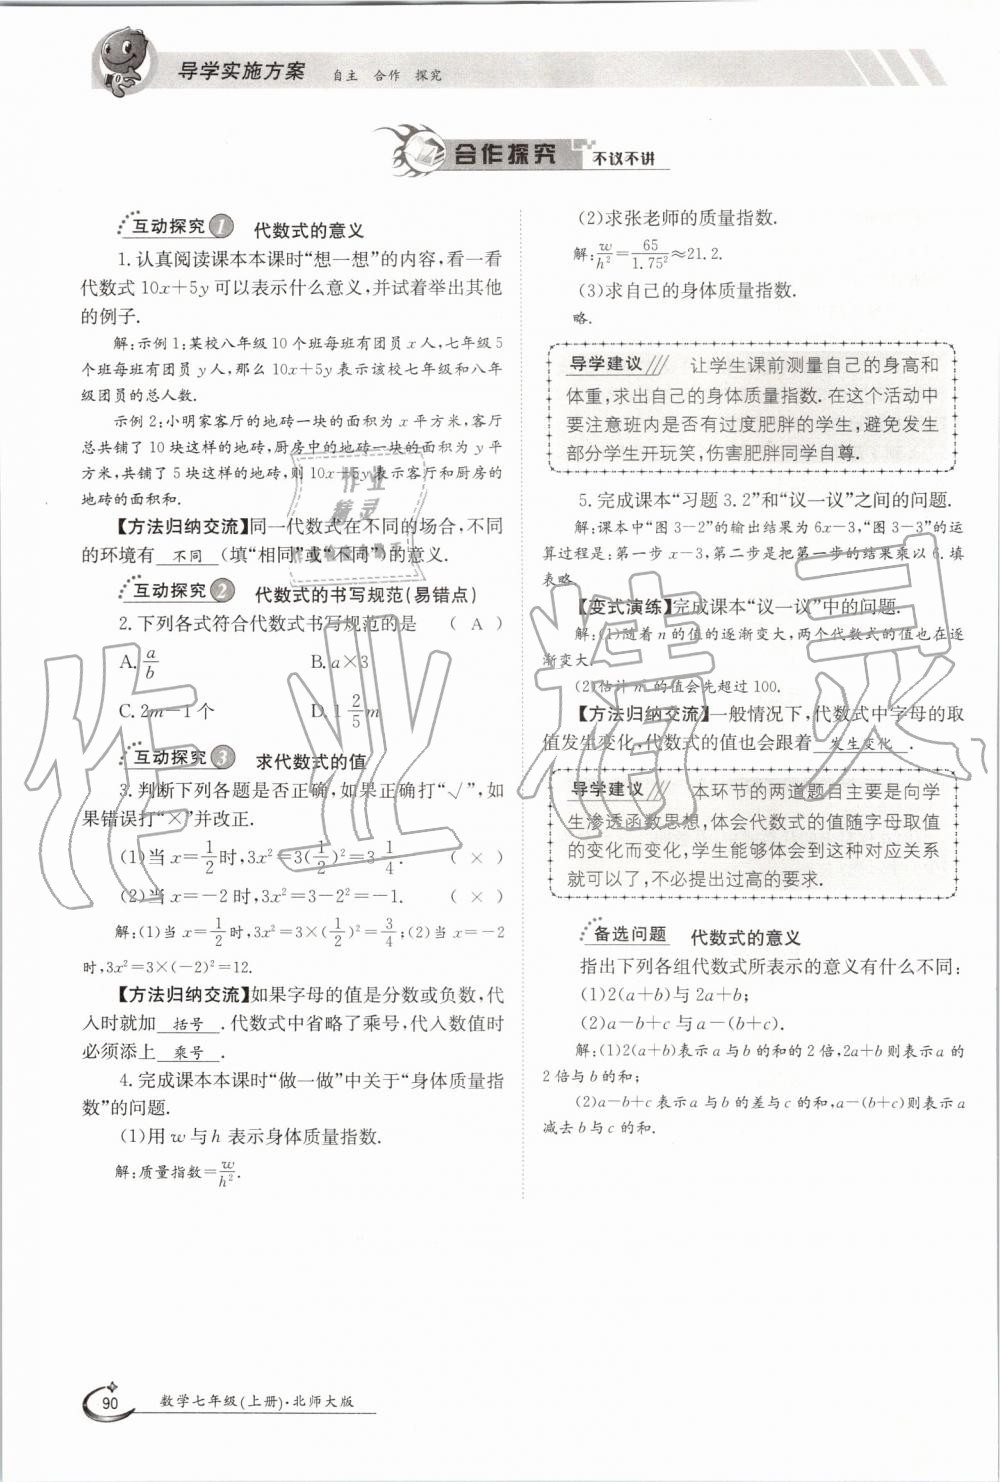 导学实施方案 自主 合作 探究
合作探究 不议不讲
互动探究1 代数式的意义
1.认真阅读课本本课时“想一想”的内容,看一看
代数式10x+5y可以表示什么意义,并试着举出其他
的例子.
解:示例1:某校八年级10个班每班有团员x人,七年级5
个班每班有团员y人,那么10x+5y表示该校七年级和八年
级团员的总人数.
示例2:小明家客厅的地砖一块的面积为x平方米,客厅
总共铺了10块这样的地砖,厨房中的地砖一块的面积为y平
方米,共铺了5块这样的地砖,则10x+5y表示客厅和厨房的
地砖的面积和.
【方法归纳交流】同一代数式在不同的场合,不同
的环境有 不同 (填“相同”或“不同”)的意义.
互动探究2 代数式的书写规范(易错点)
2.下列各式符合代数式书写规范的是 ( A )
A.a/b B.a×3
C.2m-1个 D.1 2/5 m
互动探究3 求代数式的值
3.判断下列各题是否正确,如果正确打“√”,如
果错误打“×”并改正.
(1)当x=1/2时,3x²=3(1/2)²=3 1/4. ( × )
(2)当x=-2时,3x²=3-2²=-1. ( × )
解:(1)当x=1/2时,3x²=3×(1/2)²=3/4;(2)当x=-2
时,3x²=3×(-2)²=12.
【方法归纳交流】如果字母的值是分数或负数,代
入时就加 括号 .代数式中省略了乘号,代入数值时
必须添上 乘号 .
4.完成课本本课时“做一做”中关于“身体质量指
数”的问题.
(1)用w与h表示身体质量指数.
解:质量指数=w/h².
(2)求张老师的质量指数.
解:w/h²=65/1.75²≈21.2.
(3)求自己的身体质量指数.
略.
导学建议 让学生课前测量自己的身高和
体重,求出自己的身体质量指数.在这个活动中
要注意班内是否有过度肥胖的学生,避免发生
部分学生开玩笑,伤害肥胖同学自尊.
5.完成课本“习题3.2”和“议一议”之间的问题.
解:课本中“图3-2”的输出结果为6x-3,“图3-3”的运
算过程是:第一步x-3,第二步是把第一步的结果乘以6.填
表略.
【变式演练】完成课本“议一议”中的问题.
解:(1)随着n的值的逐渐变大,两个代数式的值也在逐
渐变大.
(2)估计n²的值会先超过100.
【方法归纳交流】一般情况下,代数式中字母的取
值发生变化,代数式的值也会跟着 发生变化 .
导学建议 本环节的两道题目主要是向学
生渗透函数思想,体会代数式的值随字母取值
的变化而变化,学生能够体会到这种对应关系
就可以了,不必提出过高的要求.
备选问题 代数式的意义
指出下列各组代数式所表示的意义有什么不同:
(1)2(a+b)与2a+b;
(2)a-b+c与a-(b+c).
解:(1)2(a+b)表示a与b的和的2倍,2a+b则表示a的
2倍与b的和;
(2)a-b+c表示a与b的差与c的和,a-(b+c)则表示a
减去b与c的和.
90 数学七年级(上册)·北师大版
作业精灵